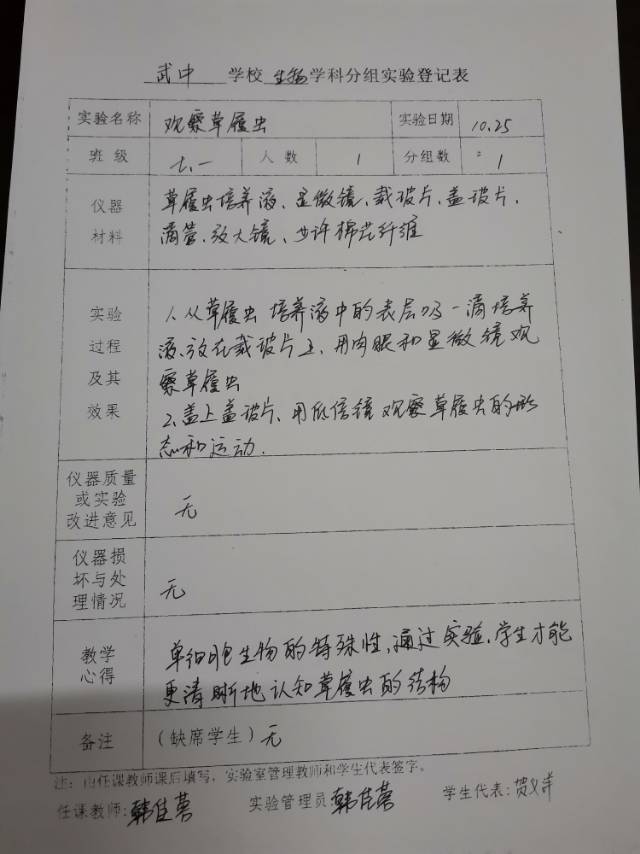 武中 学校 生物 学科分组实验登记表
实验名称 观察草履虫 实验日期 10.25
班 级 七.一 人 数 1 分组数 1
仪器
材料
草履虫培养液、显微镜、载玻片、盖玻片、
滴管、放大镜、少许棉花纤维
实验
过程
及其
效果
1、从草履虫培养液中的表层吸一滴培养
液、放在载玻片上、用肉眼和显微镜观
察草履虫
2、盖上盖玻片、用低倍镜观察草履虫的形
态和运动.
仪器质量
或实验
改进意见
无
仪器损
坏与处
理情况
无
教学
心得
单细胞生物的特殊性,通过实验,学生才能
更清晰地认知草履虫的结构
备注 (缺席学生) 无
注:由任课教师课后填写,实验室管理教师和学生代表签字。
任课教师: 韩佳蓉 实验管理员 韩佳蓉 学生代表: 贺义洋